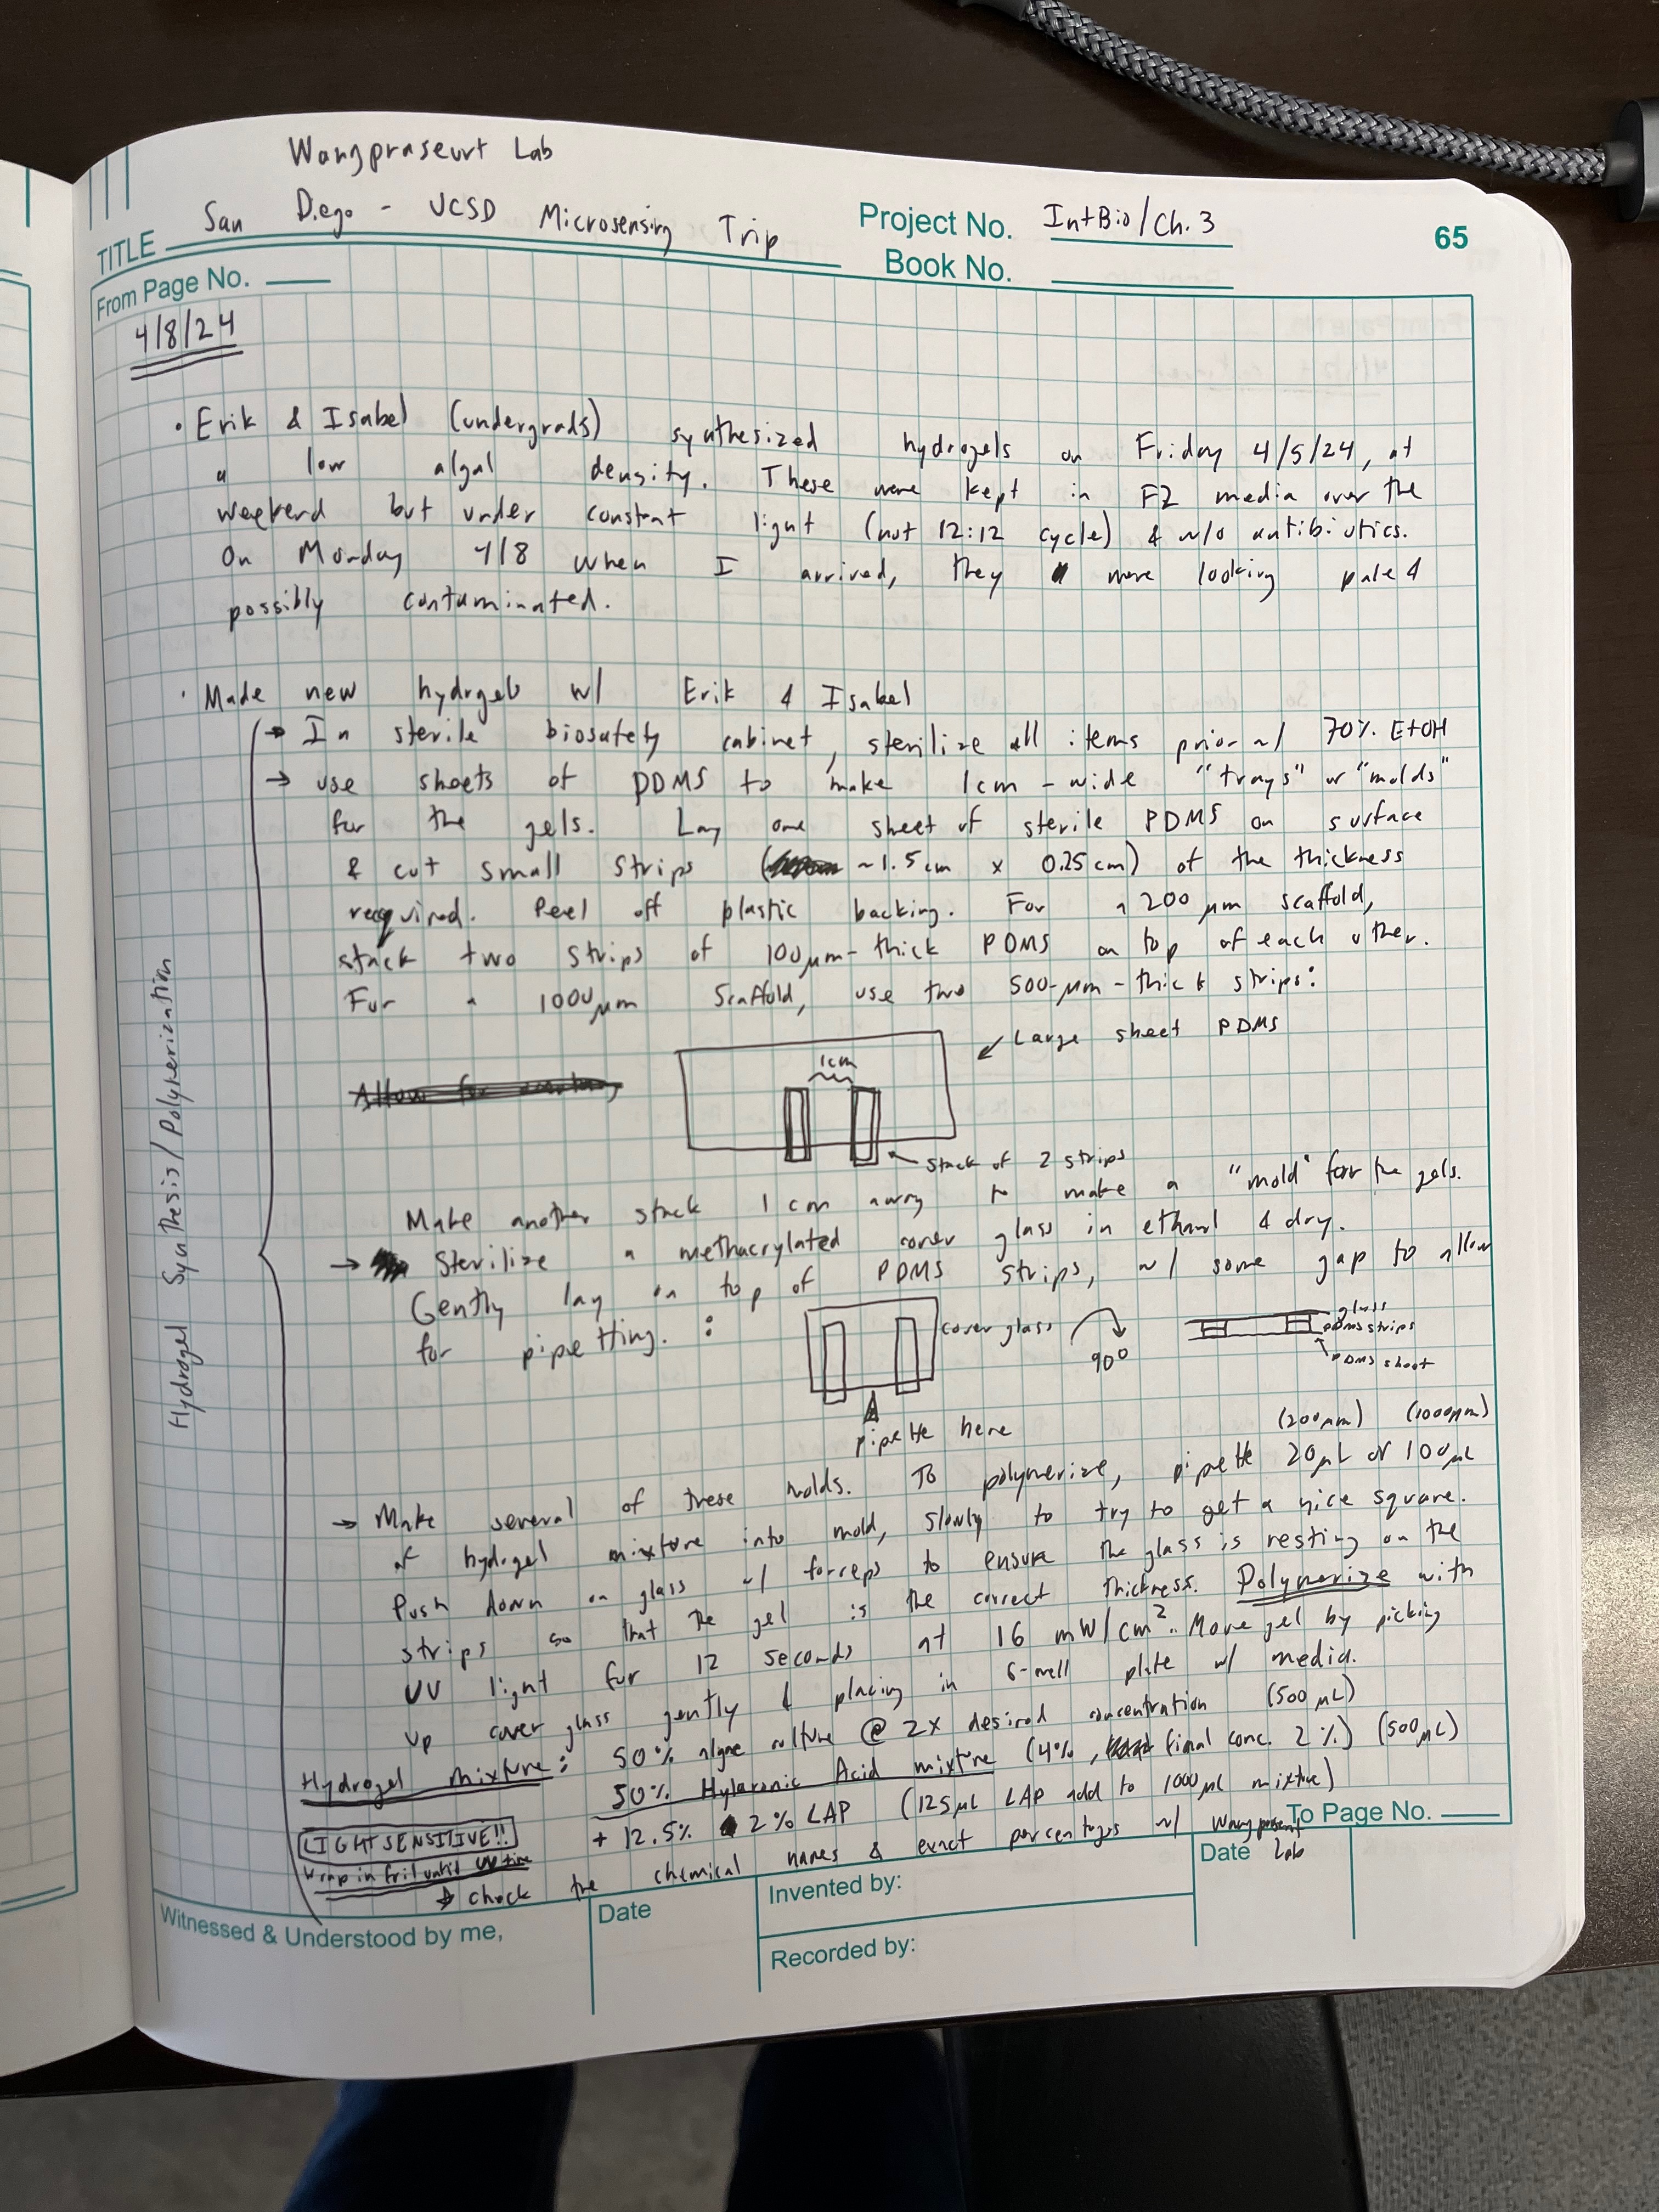 Wangpraseurt Lab
San Diego - UCSD Microsensing Trip
TITLE
Project No. IntBio/Ch. 3
Book No.
65
From Page No.
4/8/24
• Erik & Isabel (undergrads) synthesized hydrogels on Friday 4/5/24, at
a low algal density. These were kept in F2 media over the
weekend but under constant light (not 12:12 cycle) & w/o antibiotics.
On Monday 4/8 when I arrived, they were looking pale &
possibly contaminated.
• Made new hydrogels w/ Erik & Isabel
→ In sterile biosafety cabinet, sterilize all items prior w/ 70% EtOH
→ use sheets of PDMS to make 1cm-wide "trays" or "molds"
for the gels. Lay one sheet of sterile PDMS on surface
& cut small strips (~1.5cm x 0.25cm) of the thickness
required. Peel off plastic backing. For a 200 µm scaffold,
stack two strips of 100µm-thick PDMS on top of each other.
For a 1000µm scaffold, use two 500-µm-thick strips:
Large sheet PDMS
1cm
Allow for
stack of 2 strips
Make another stack 1cm away to make a "mold" for the gels.
→ Sterilize a methacrylated cover glass in ethanol & dry.
Gently lay on top of PDMS strips, w/ some gap to allow
for pipetting. :
cover glass
90°
glass
PDMS strips
PDMS sheet
pipette here
(200µm) (1000µm)
→ Make several of these molds. To polymerize, pipette 20µL or 100µL
of hydrogel mixture into mold, slowly to try to get a nice square.
Push down on glass w/ forceps to ensure the glass is resting on the
strips so that the gel is the correct thickness. Polymerize with
UV light for 12 seconds at 16 mW/cm². Move gel by picking
up cover glass gently & placing in 6-well plate w/ media.
Hydrogel mixture: 50% algae culture @ 2x desired concentration (500µL)
50% Hylaronic Acid mixture (4%, final conc. 2%) (500µL)
+ 12.5% 2% LAP (125µL LAP add to 1000µL mixture)
LIGHT SENSITIVE!!
Wrap in foil until UV time
→ check the chemical names & exact percentages w/ Wangpraseurt Lab
Hydrogel Synthesis/Polymerization
To Page No.
Witnessed & Understood by me,
Date
Invented by:
Recorded by:
Date